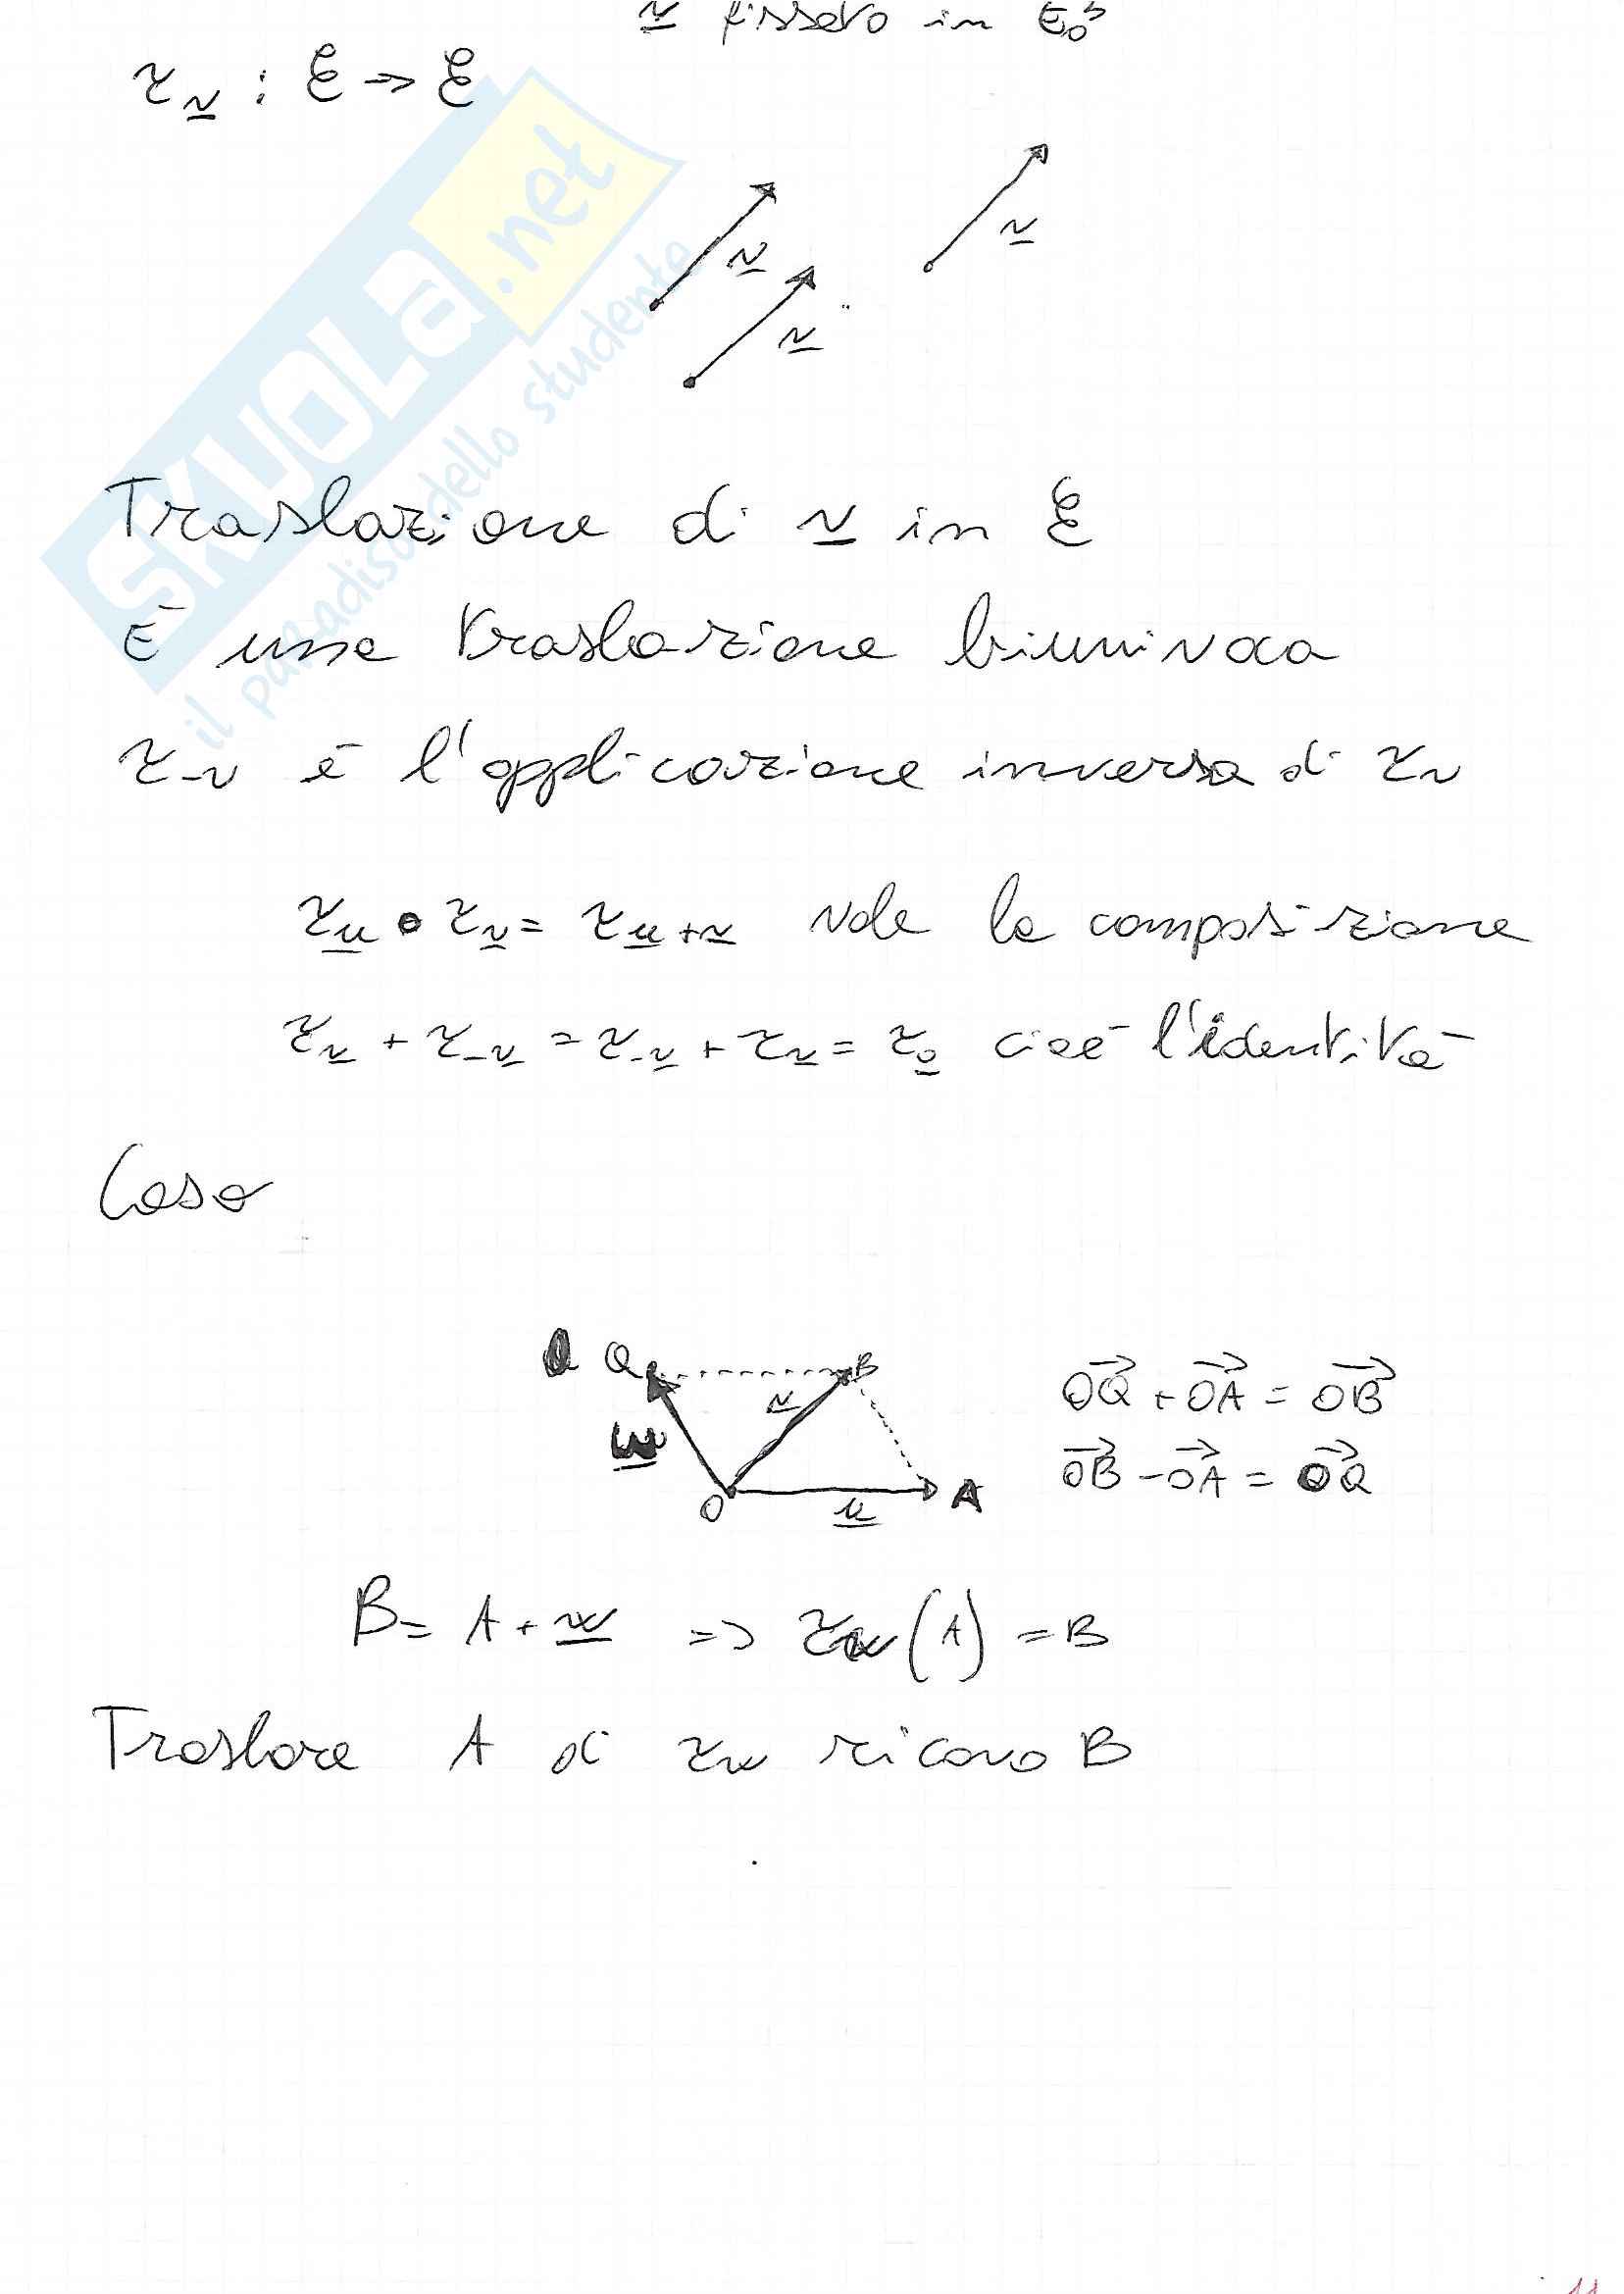 v fissato in E₀³
τ_v : ℰ → ℰ
v
v
v
Traslazione di v in ℰ
È una traslazione biunivoca
τ_-v è l'applicazione inversa di τ_v
τ_u ∘ τ_v = τ_u+v vale la composizione
τ_v + τ_-v = τ_-v + τ_v = τ_0 cioè l'identità
Caso
Q B
v
w
O u A
OQ + OA = OB
OB - OA = OQ
B = A + w => τ_w (A) = B
Traslare A di τ_w ricavo B
SKUOLA.net
il paradiso dello studente
11